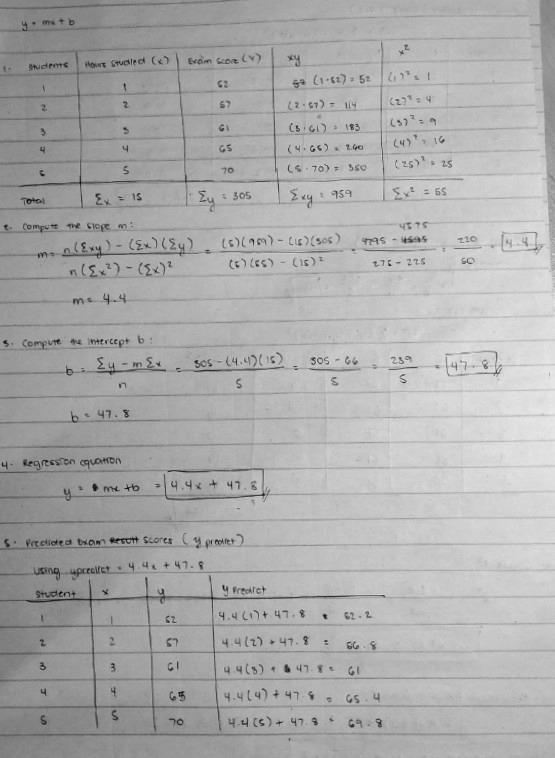 y = mx + b
1. Students Hours Studied (x) Exam Score (Y) xy x²
1 1 52 (1·52) = 52 (1)² = 1
2 2 57 (2·57) = 114 (2)² = 4
3 3 61 (3·61) = 183 (3)² = 9
4 4 65 (4·65) = 260 (4)² = 16
5 5 70 (5·70) = 350 (25)² = 25
Total Σx = 15 Σy = 305 Σxy = 959 Σx² = 55
2. Compute the slope m:
m = n(Σxy) - (Σx)(Σy) / n(Σx²) - (Σx)² = (5)(959) - (15)(305) / (5)(55) - (15)² = 4795 - 4575 / 275 - 225 = 220 / 50 = 4.4
m = 4.4
3. Compute the intercept b:
b = Σy - mΣx / n = 305 - (4.4)(15) / 5 = 305 - 66 / 5 = 239 / 5 = 47.8
b = 47.8
4. Regression equation
y = mx + b = 4.4x + 47.8
5. Predicted Exam Result Scores (y predict)
Using ypredict = 4.4x + 47.8
Student x y y Predict
1 1 52 4.4(1) + 47.8 = 52.2
2 2 57 4.4(2) + 47.8 = 56.8
3 3 61 4.4(3) + 47.8 = 61
4 4 65 4.4(4) + 47.8 = 65.4
5 5 70 4.4(5) + 47.8 = 69.8